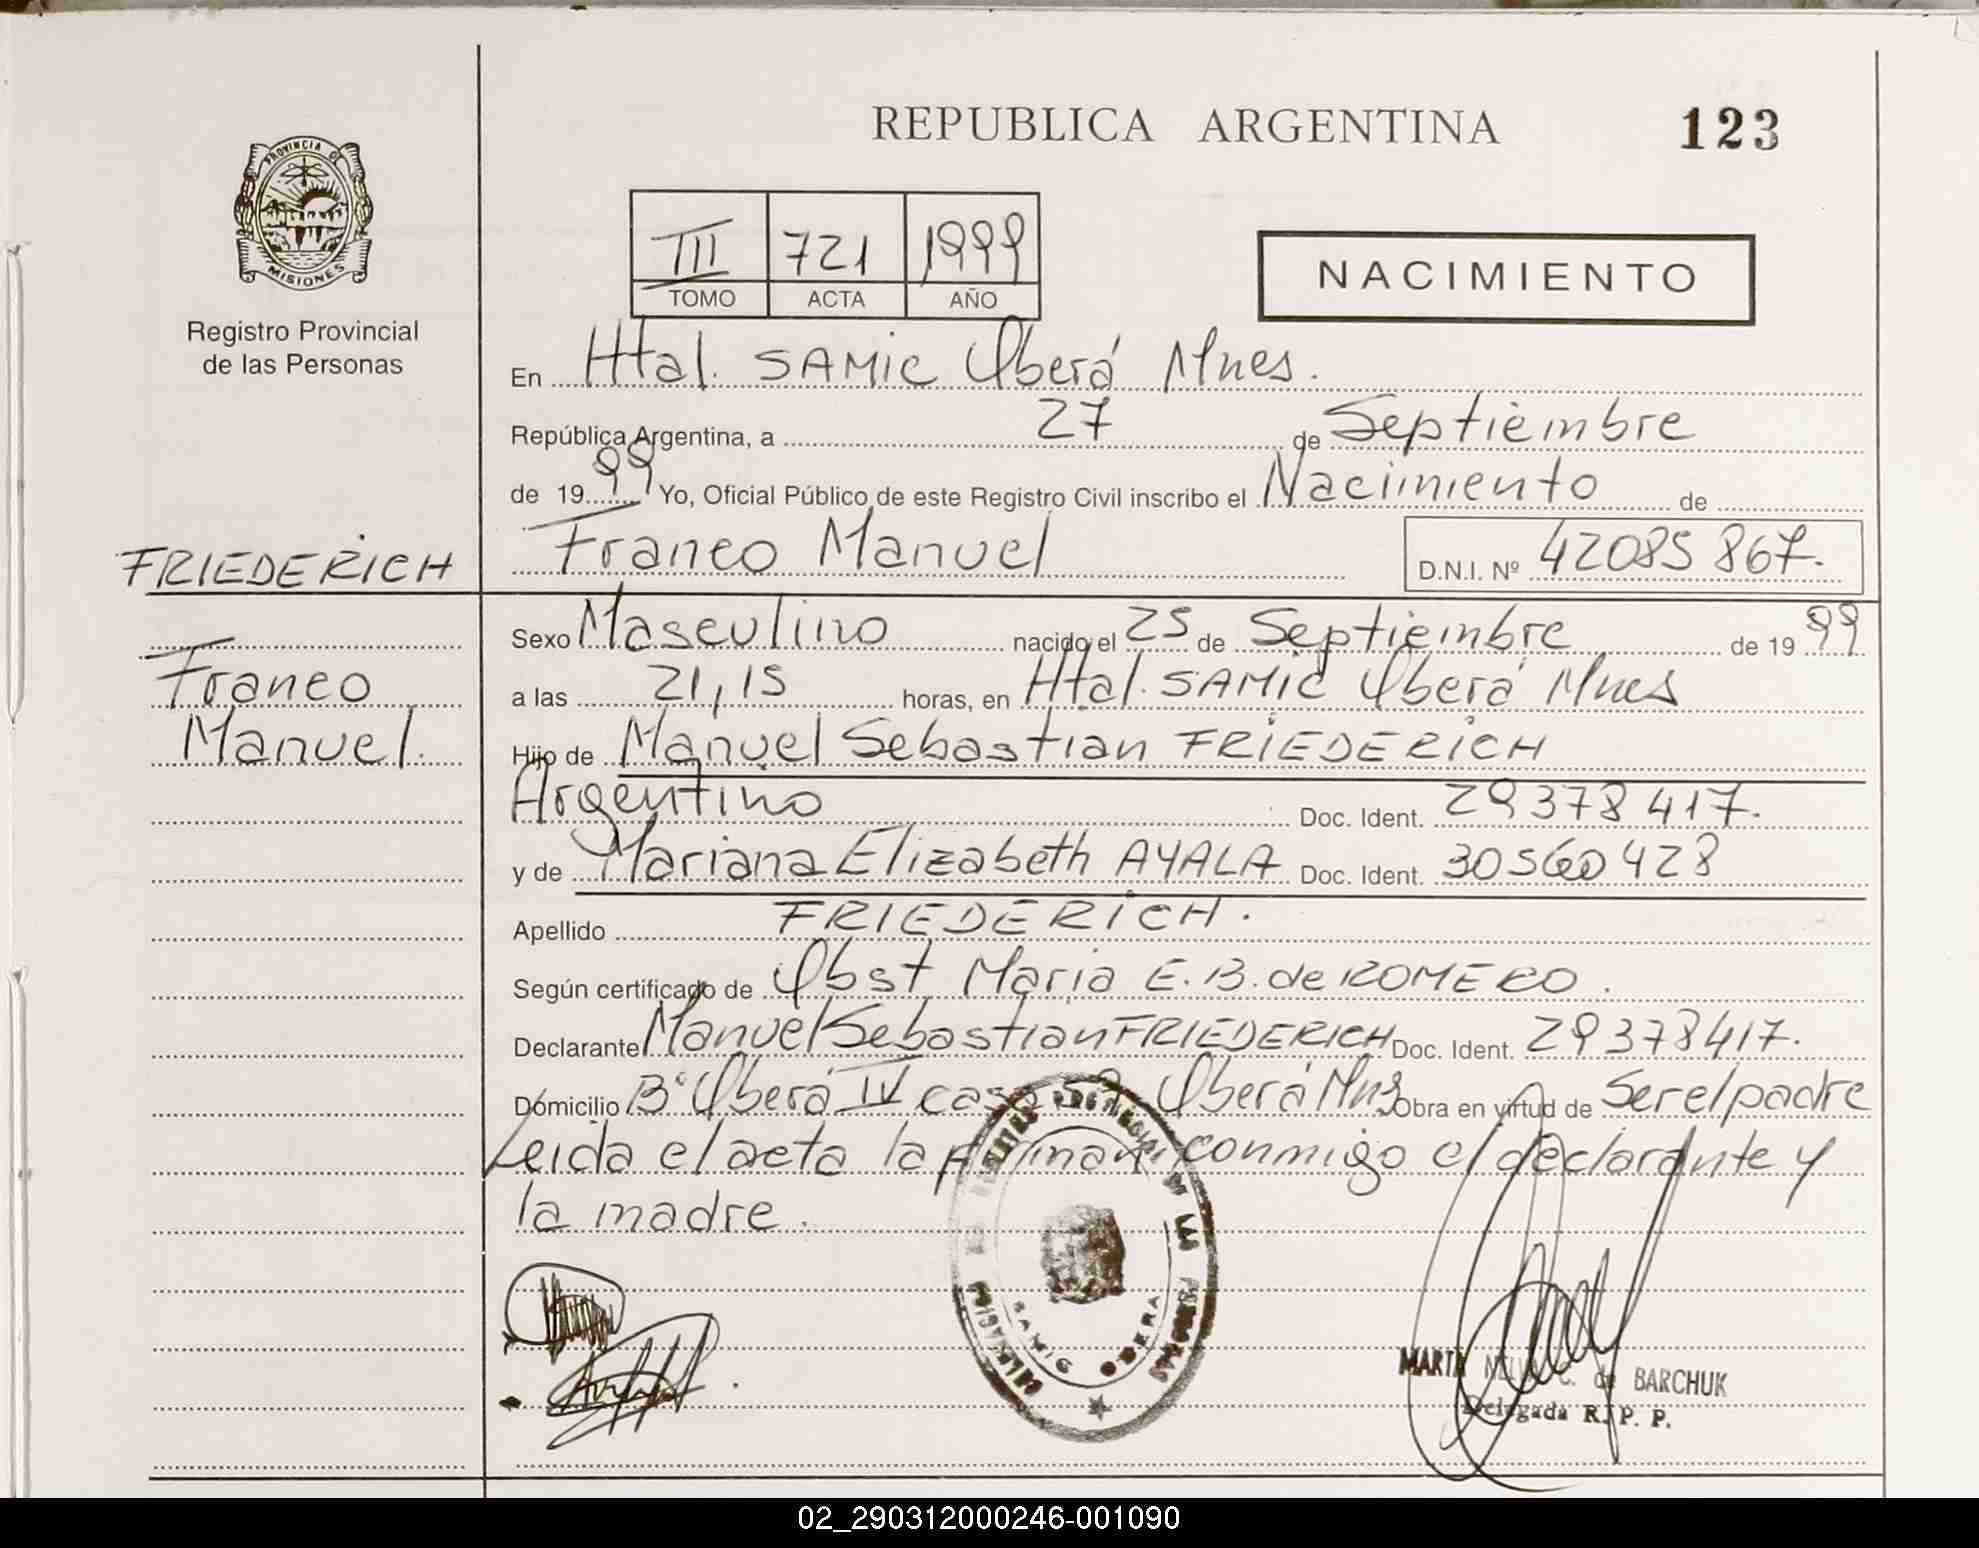 REPUBLICA ARGENTINA
123
PROVINCIA DE
MISIONES
Registro Provincial
de las Personas
III 721 1999
TOMO ACTA AÑO
NACIMIENTO
En Htal. SAMIC Oberá Mnes.
República Argentina, a 27 de Septiembre
de 1999 Yo, Oficial Público de este Registro Civil inscribo el Nacimiento de
Franco Manuel D.N.I. Nº 42085867.
FRIEDERICH
Franco
Manuel.
Sexo Masculino nacido el 25 de Septiembre de 1999
a las 21,15 horas, en Htal. SAMIC Oberá Mnes
Hijo de Manuel Sebastian FRIEDERICH
Argentino Doc. Ident. 29378417.
y de Mariana Elizabeth AYALA Doc. Ident. 30560428
Apellido FRIEDERICH.
Según certificado de Obst Maria E. B. de ROMERO.
Declarante Manuel Sebastian FRIEDERICH Doc. Ident. 29378417.
Domicilio B° Oberá IV casa Oberá Mns Obra en virtud de Ser el padre
Leida el acta la firman conmigo el declarante y
la madre.
DELEGACION REGISTRO PROVINCIAL DE LAS PERSONAS
SAMIC OBERA
MARTA C. de BARCHUK
Delegada R. P. P.
02_290312000246-001090